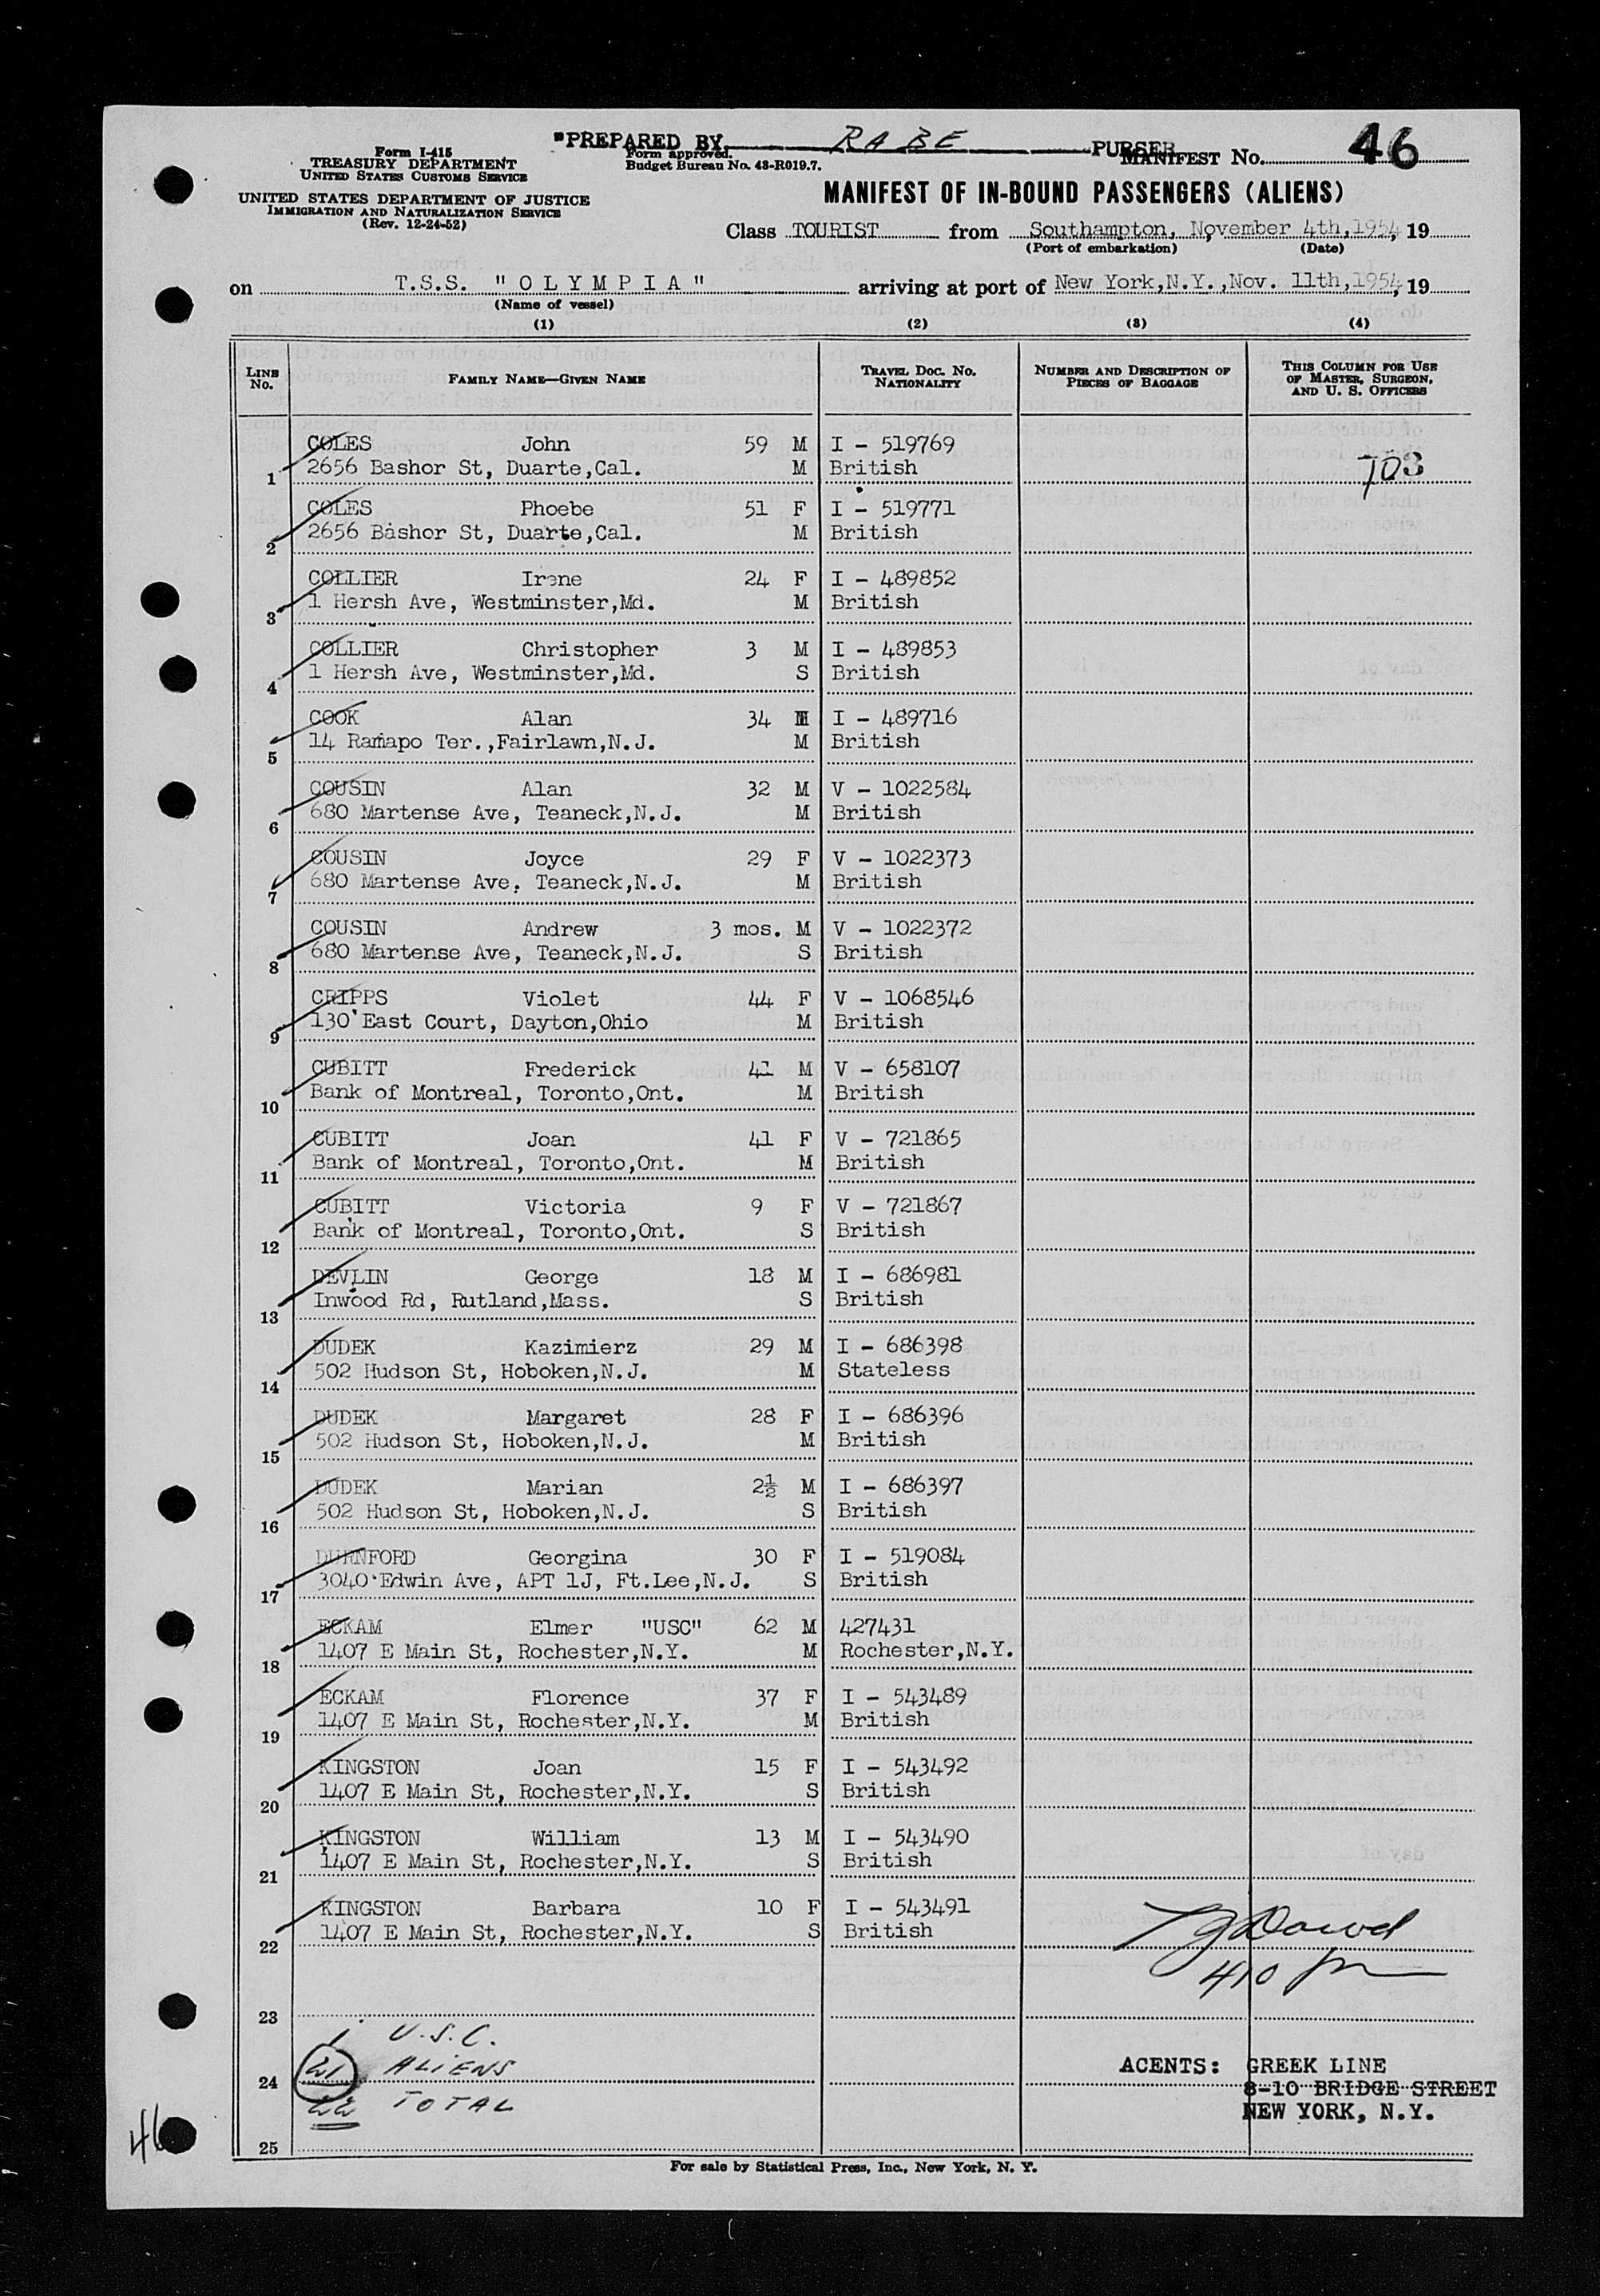 "PREPARED BY RABE PURSER
Form I-415
TREASURY DEPARTMENT
UNITED STATES CUSTOMS SERVICE
UNITED STATES DEPARTMENT OF JUSTICE
IMMIGRATION AND NATURALIZATION SERVICE
(Rev. 12-24-52)
Form approved.
Budget Bureau No. 43-R019.7.
MANIFEST No. 46
MANIFEST OF IN-BOUND PASSENGERS (ALIENS)
Class TOURIST from Southampton, November 4th,1954, 19
(Port of embarkation) (Date)
on T.S.S. "OLYMPIA" arriving at port of New York,N.Y.,Nov. 11th,1954, 19
(Name of vessel)
(1) (2) (3) (4)
LINE No. FAMILY NAME—GIVEN NAME TRAVEL DOC. No. NATIONALITY NUMBER AND DESCRIPTION OF PIECES OF BAGGAGE THIS COLUMN FOR USE OF MASTER, SURGEON, AND U. S. OFFICERS
COLES John 59 M I - 519769
1 2656 Bashor St, Duarte,Cal. M British 703
COLES Phoebe 51 F I - 519771
2 2656 Bashor St, Duarte,Cal. M British
COLLIER Irene 24 F I - 489852
3 1 Hersh Ave, Westminster,Md. M British
COLLIER Christopher 3 M I - 489853
4 1 Hersh Ave, Westminster,Md. S British
COOK Alan 34 M I - 489716
5 14 Ramapo Ter.,Fairlawn,N.J. M British
COUSIN Alan 32 M V - 1022584
6 680 Martense Ave, Teaneck,N.J. M British
COUSIN Joyce 29 F V - 1022373
7 680 Martense Ave, Teaneck,N.J. M British
COUSIN Andrew 3 mos. M V - 1022372
8 680 Martense Ave, Teaneck,N.J. S British
CRIPPS Violet 44 F V - 1068546
9 130 East Court, Dayton,Ohio M British
CUBITT Frederick 41 M V - 658107
10 Bank of Montreal, Toronto,Ont. M British
CUBITT Joan 41 F V - 721865
11 Bank of Montreal, Toronto,Ont. M British
CUBITT Victoria 9 F V - 721867
12 Bank of Montreal, Toronto,Ont. S British
DEVLIN George 18 M I - 686981
13 Inwood Rd, Rutland,Mass. S British
DUDEK Kazimierz 29 M I - 686398
14 502 Hudson St, Hoboken,N.J. M Stateless
DUDEK Margaret 28 F I - 686396
15 502 Hudson St, Hoboken,N.J. M British
DUDEK Marian 2½ M I - 686397
16 502 Hudson St, Hoboken,N.J. S British
DURNFORD Georgina 30 F I - 519084
17 3040 Edwin Ave, APT 1J, Ft.Lee,N.J. S British
ECKAM Elmer "USC" 62 M 427431
18 1407 E Main St, Rochester,N.Y. M Rochester,N.Y.
ECKAM Florence 37 F I - 543489
19 1407 E Main St, Rochester,N.Y. M British
KINGSTON Joan 15 F I - 543492
20 1407 E Main St, Rochester,N.Y. S British
KINGSTON William 13 M I - 543490
21 1407 E Main St, Rochester,N.Y. S British
KINGSTON Barbara 10 F I - 543491
22 1407 E Main St, Rochester,N.Y. S British
410 pm
23
1 U.S.C.
24 21 ALIENS
22 TOTAL
ACENTS: GREEK LINE
8-10 BRIDGE STREET
NEW YORK, N.Y.
46
25
For sale by Statistical Press, Inc., New York, N. Y.